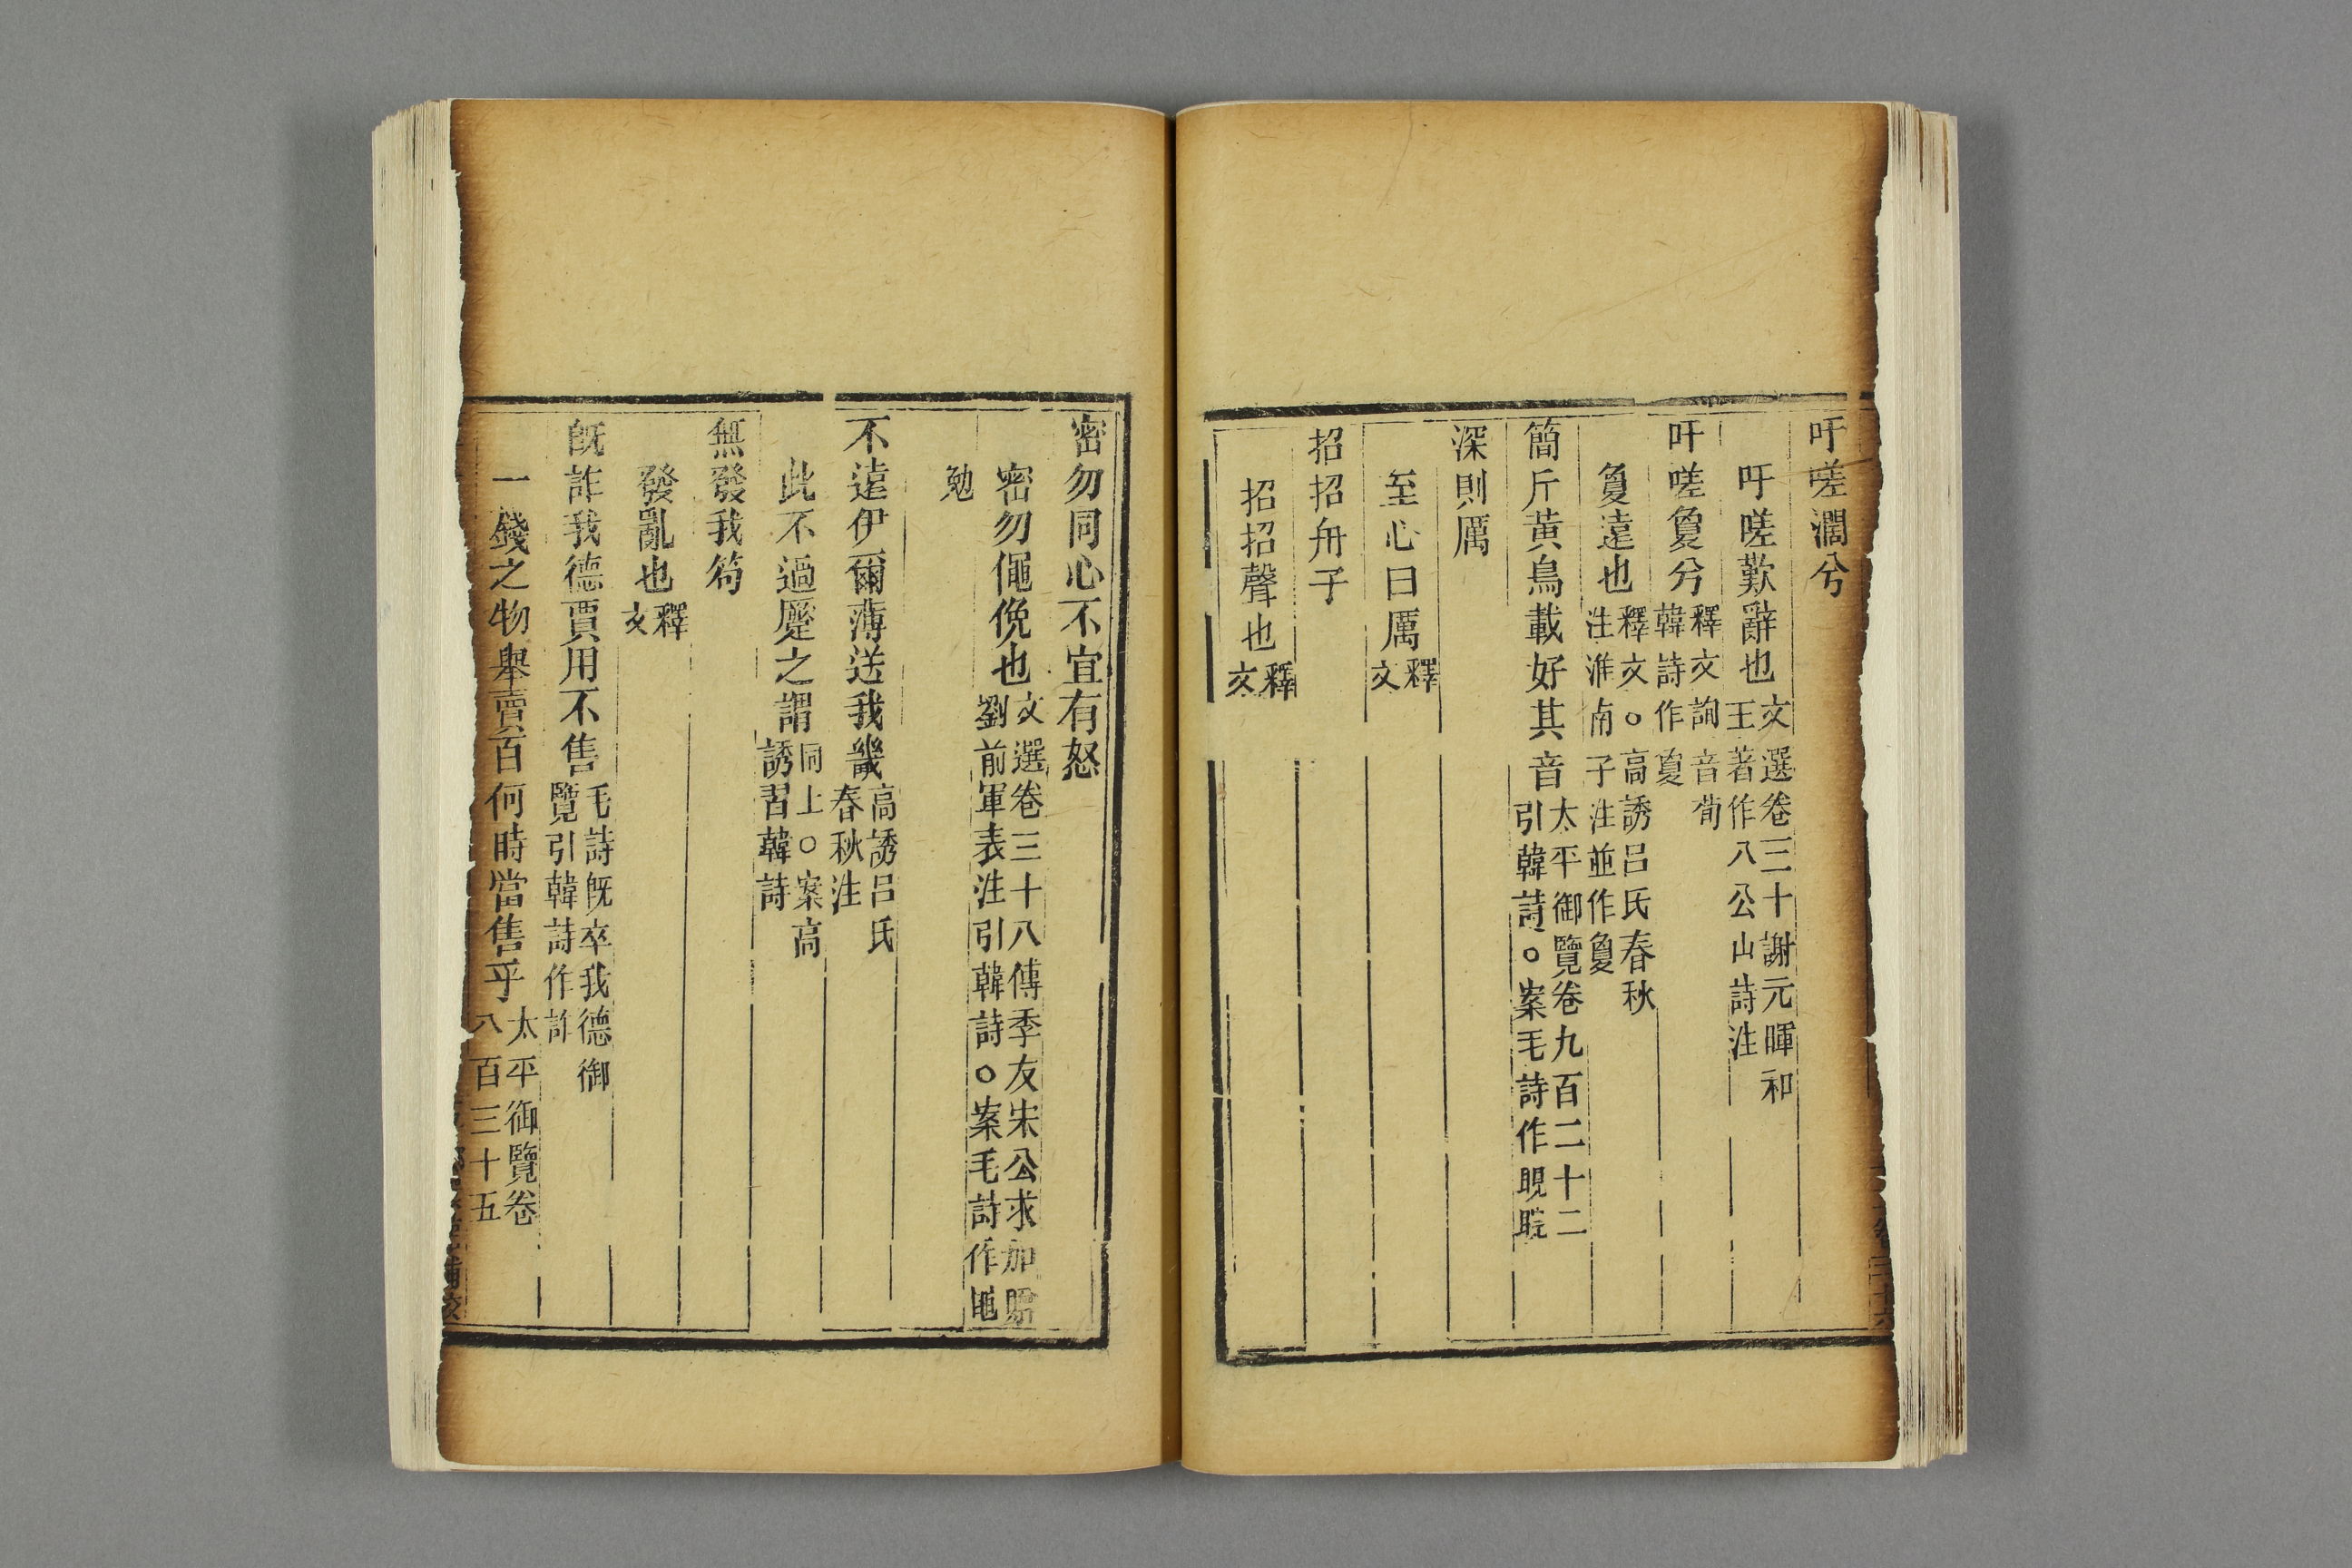 吁嗟濶兮
吁嗟歎辭也文選卷三十謝元暉和
王著作八公山詩注
吁嗟夐兮釋文詢音荀
韓詩作夐
夐遠也釋文○高誘呂氏春秋
注淮南子注並作夐
簡斤黃鳥載好其音太平御覽卷九百二十二
引韓詩○案毛詩作睍睆
深則厲
至心曰厲釋
文
招招舟子
招招聲也釋
文
密勿同心不宜有怒
密勿僶俛也文選卷三十八傅季友宋公求加贈
劉前軍表注引韓詩○案毛詩作黽
勉
不遠伊爾薄送我畿高誘呂氏
春秋注
此不過壓之謂同上○案高
誘習韓詩
無發我笱
發亂也釋
文
旣詐我德賈用不售毛詩旣卒我德御
覽引韓詩作詐
一錢之物舉賣百何時當售乎太平御覽卷
八百三十五